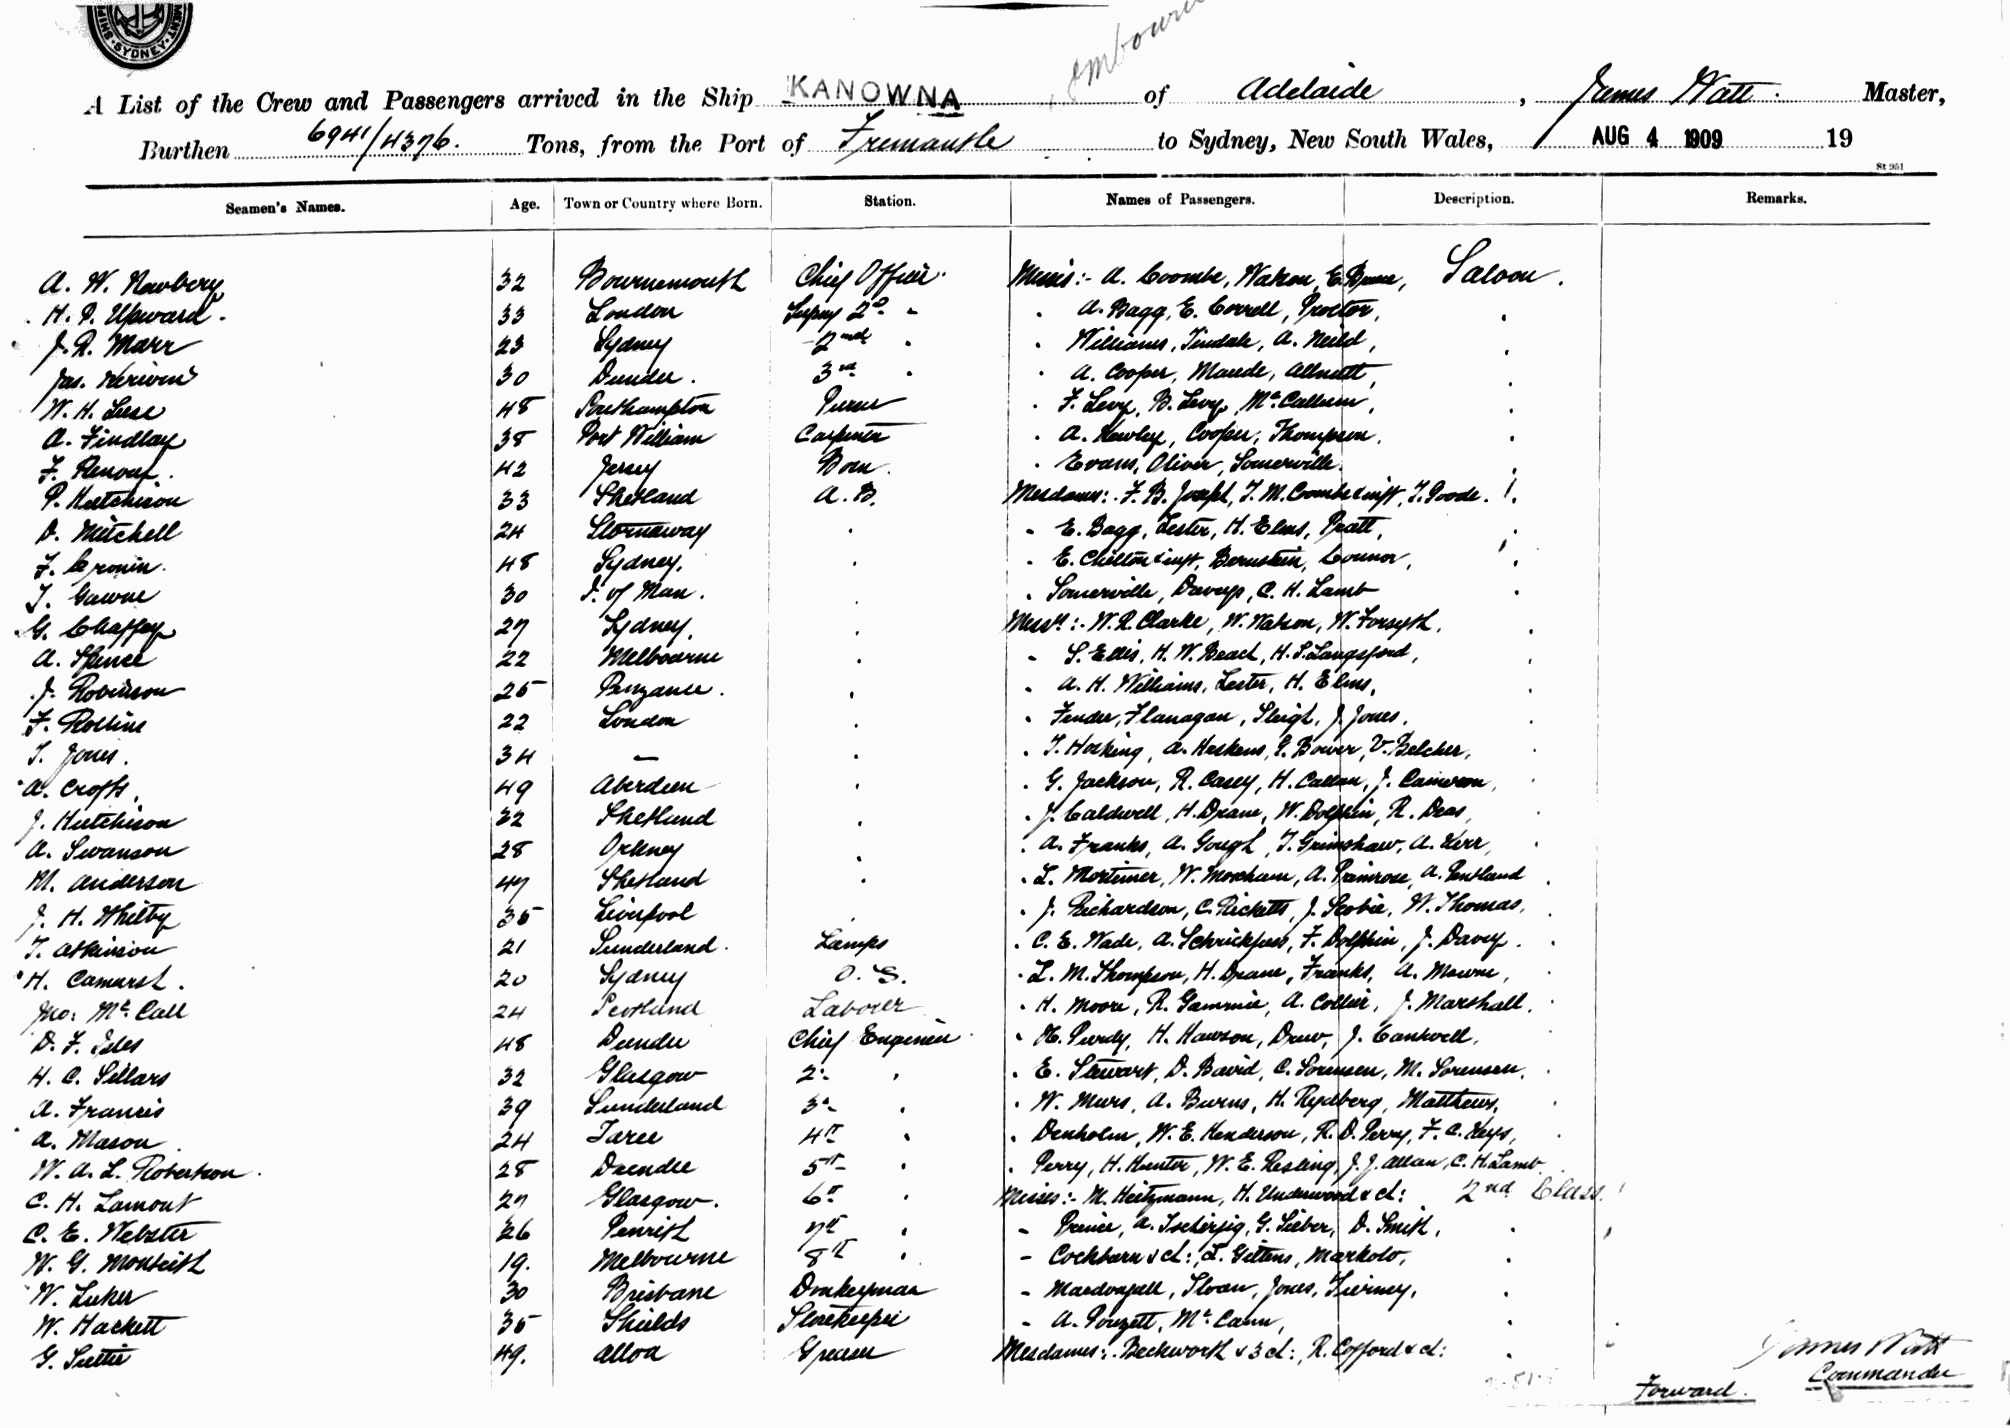 SYDNEY
A List of the Crew and Passengers arrived in the Ship KANOWNA of Adelaide, James Watt Master,
Burthen 6941/4376. Tons, from the Port of Fremantle to Sydney, New South Wales, AUG 4 1909 19
St 951
Seamen's Names. Age. Town or Country where Born. Station. Names of Passengers. Description. Remarks.
A. W. Newbery 32 Bournemouth Chief Officer Misses:- A. Coombe, Watson, E. Saloon.
H. P. Upward 33 London 2d " A. Bagg, E. Correll, Proctor,
J. R. Marr 23 Sydney 2nd " Williams, Tindale, A. Neild,
Jas. Kerwin 30 Dundee. 3rd " A. Cooper, Maude, Allnutt,
W. H. 48 Southampton Purser F. Levy, B. Levy, McCallum,
A. Findlay 38 Port William Carpenter A. Hewley, Cooper, Thompson,
F. Renouf. 42 Jersey Bosn. Evans, Oliver, Somerville.
P. Hutchison 33 Shetland A.B. Mesdames:- F. B. Joseph, T. M. Coombe & inft, T. Goode.
D. Mitchell 24 Stornaway E. Bagg, Lester, H. Elms, Pratt,
F. Cronin. 48 Sydney. E. Chilton & inft, Bernstein, Connor,
T. Gawne 30 I. of Man. Somerville, C. H. Lamb
G. Chaffey 27 Sydney, Messrs:- W. R. Clarke, W. Watson, W. Forsyth,
A. Spence 22 Melbourne S. Ellis, H. W. Beach, H. S. Langsford,
J. Robinson 25 Penzance. A. H. Williams, Lester, H. Elms,
F. Rollins 22 London Flanagan, Sleigh, J. Jones,
T. Jones. 34 — T. Hosking, A. Heskens, Bower, V. Belcher,
A. Crofts, 49 Aberdeen G. Jackson, R. Casey, H. Callan, J. Cameron,
J. Hutchison 32 Shetland J. Caldwell, H. Deane, W. Dolphin, R. Deas,
A. Swanson 28 Orkney A. Franks, A. Gough, T. Grimshaw, A. Kerr,
M. Anderson 47 Shetland L. Mortimer, W. Moxham, A. Primrose, A. Pentland
J. H. Whitby 35 Liverpool J. Richardson, C. Ricketts, J. Scobie, W. Thomas,
T. Atkinson 21 Sunderland. Lamps C. E. Wade, A. F. Dolphin, J. Davey.
H. 20 Sydney O. S. L. M. Thompson, H. Deane, Franks, A. Mowne,
Jno: McCall 24 Scotland Laborer H. Moore, R. Gammie, A. Collier, J. Marshall.
D. F. Isles 48 Dundee Chief Engineer H. Hawson, Drew, J. Cantwell,
H. C. Sillars 32 Glasgow 2d " E. Stewart, D. David, C. Sorensen, M. Sorensen,
A. Francis 39 Sunderland 3d " W. A. Burns, H. Rydberg, Matthews,
A. Mason 24 Taree 4th " Denholm, W. E. Henderson, R. D. Perry, F. C. Keys,
W. A. L. Robertson. 28 Dundee 5th " Perry, H. Hunter, W. E. Resling, J. J. Allan, C. H. Lamb
C. H. Lamont 27 Glasgow. 6th " Misses:- M. Heitzmann, H. Underwood & ch: 2nd Class.
C. E. Webster 26 Penrith 7th " G. Sieber, D. Smith,
W. G. Monteith 19. Melbourne 8th " Cockburn & ch:, L. Gittens,
W. Luker 30 Brisbane Donkeyman Macdougall, Sloan, Jones, Tierney,
W. Hackett 35 Shields Storekeeper A. McCann,
G. Suttie 49. Alloa Greaser Mesdames:- Beckworth & 3 ch:, R. Cofford & ch:
James Watt
Commander
Forward.